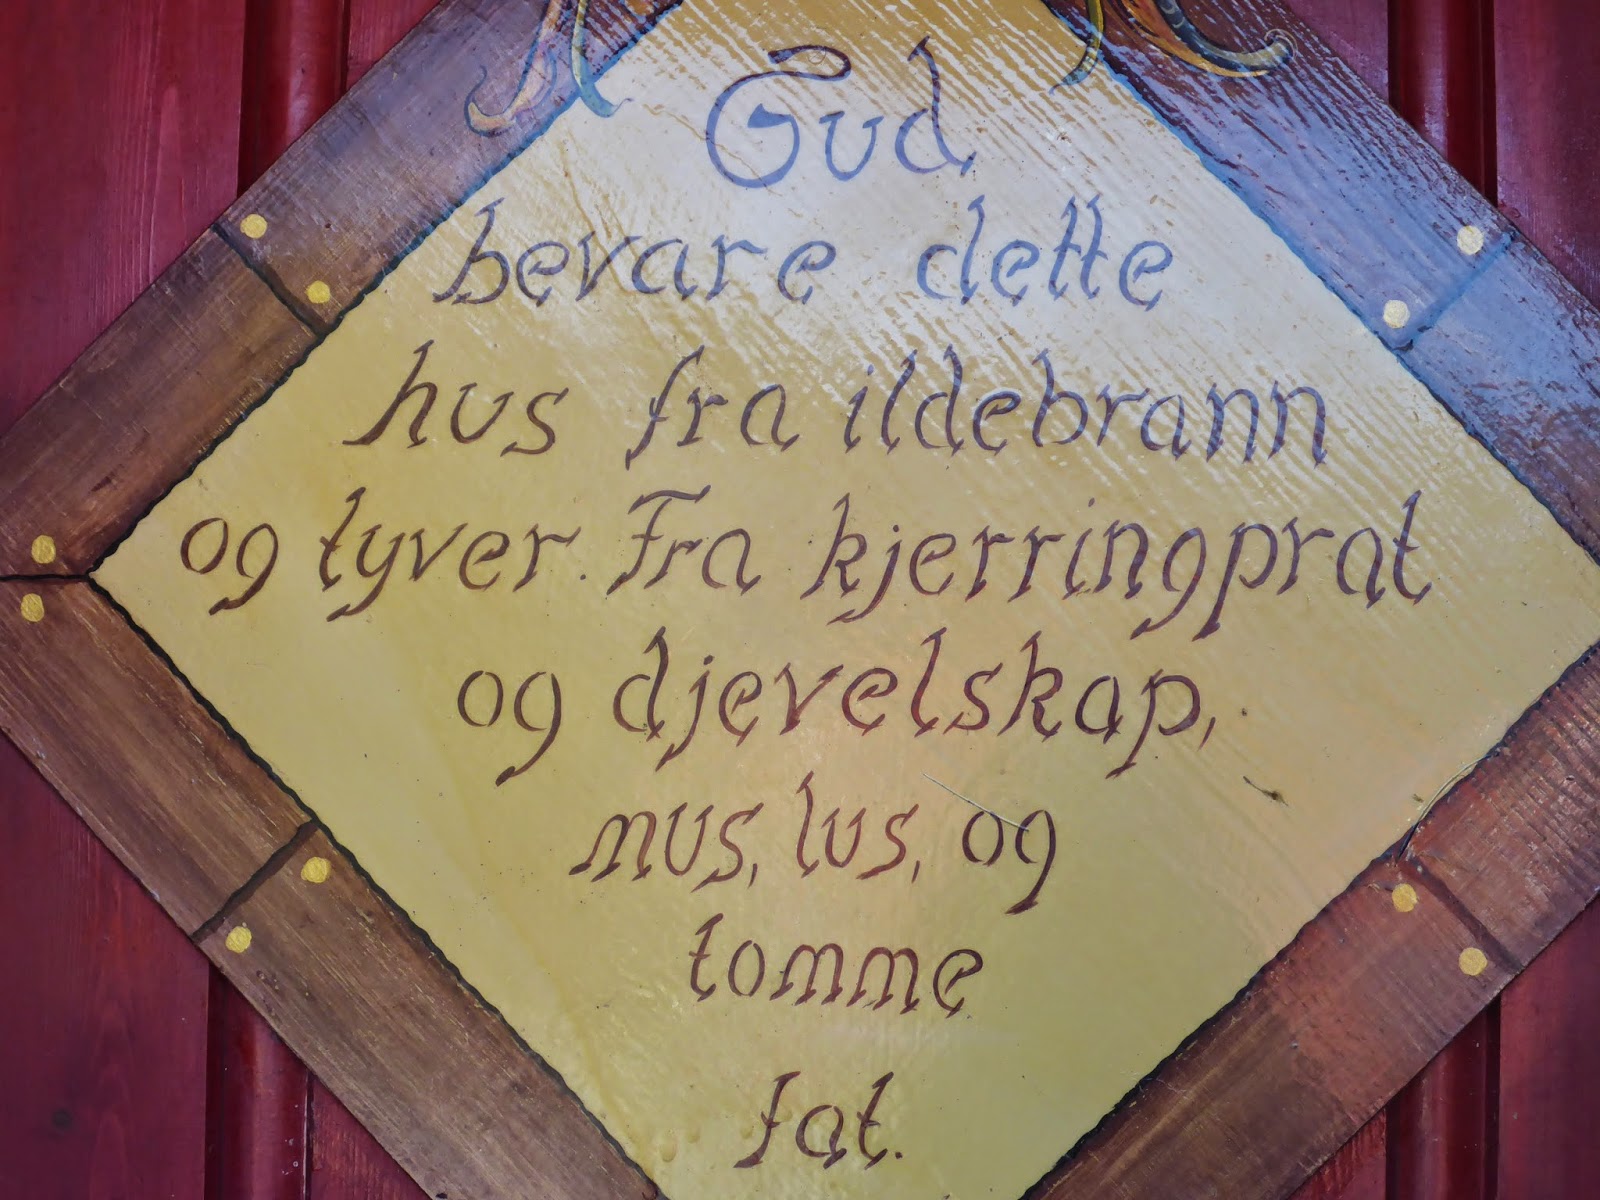 Gud
bevare dette
hus fra ildebrann
og tyver. Fra kjerringprat
og djevelskap,
mus, lus, og
tomme
fat.